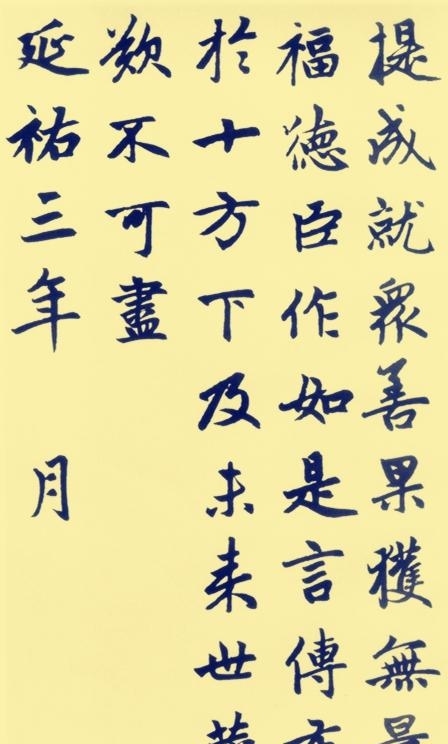 提成就衆善果獲無
福德臣作如是言傳
於十方下及未来世
歎不可盡
延祐三年 月